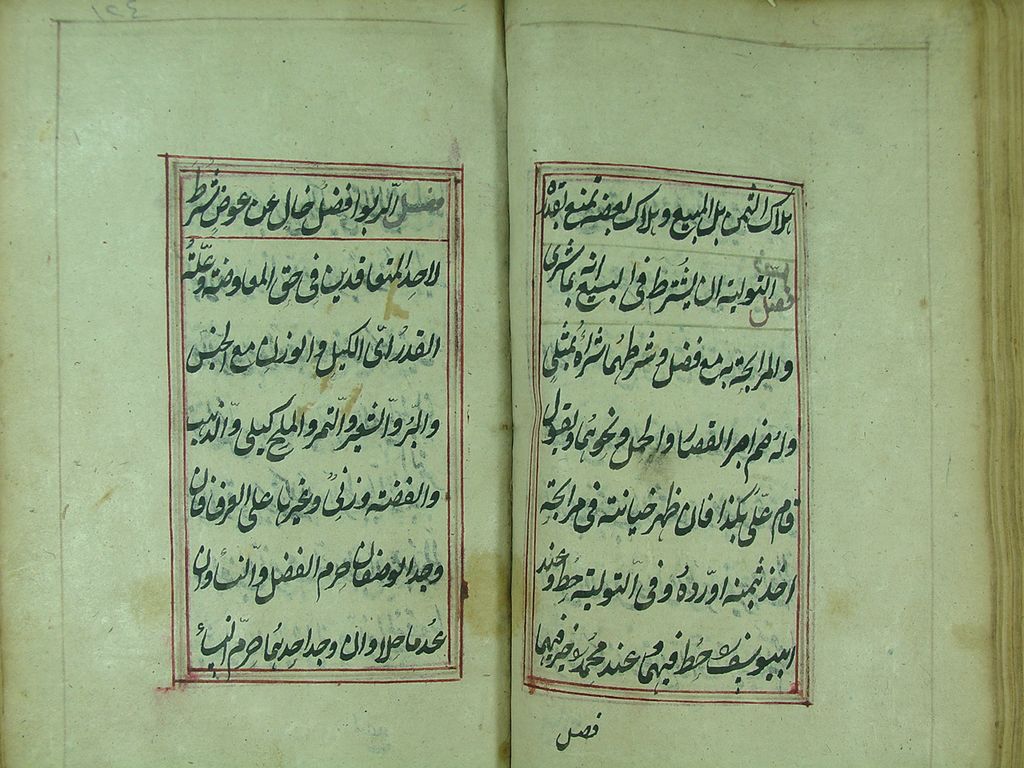 هلاك الثمن بل المبيع وهلاك بعضه تمنع بقدره
فصل التولية ان يشترط فى البيع انه بما شرى
والمرابحة به مع فضل وشرطهما شراؤه بمثلى
وله ضم اجر القصار والحمل ونحوهما ويقول
قام علّى بكذا فان ظهر خيانته فى مرابحة
اخذ بثمنه او ردّه وفى التولية حط وعند
ابيوسف حط فيهما وعند محمد خير فيهما
فصل
١٣٤
فصل الربوا فضل خال عن عوض شرط
لاحد المتعاقدين فى حق المعاوضة وعلته
القدر اى الكيل والوزن مع الجنس
والبر والشعير والتمر والملح كيلى والذهب
والفضة وزنى وغيرها على العرف فان
وجد الوصفان حرم الفضل والنسأ وان
عدما حلا وان وجد احدهما حرم النسأ